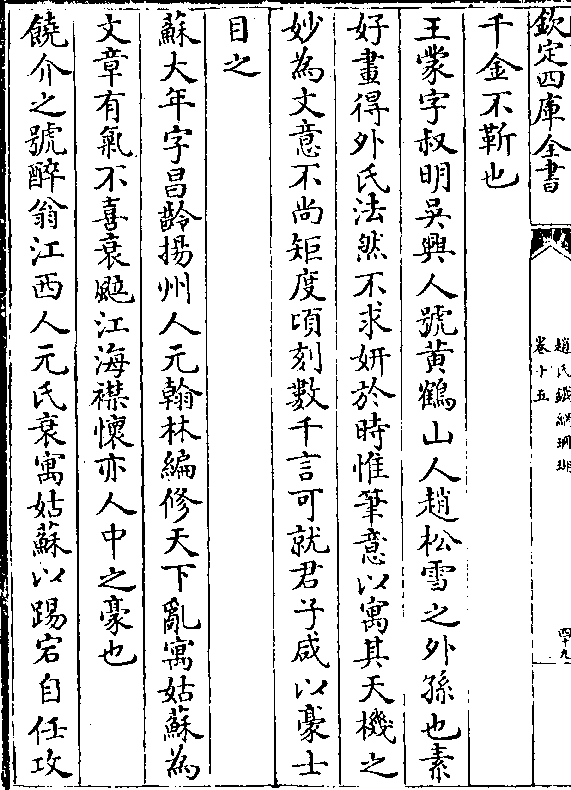 欽定四庫全書
趙氏鐵網珊瑚
卷十五
四十九
千金不靳也
王蒙字叔明吳興人號黃鶴山人趙松雪之外孫也素
好畫得外氏法然不求妍於時惟筆意以寓其天機之
妙為文意不尚矩度頃刻數千言可就君子咸以豪士
目之
蘇大年字昌齡揚州人元翰林編修天下亂寓姑蘇為
文章有氣不喜衰颰江海襟懷亦人中之豪也
饒介之號醉翁江西人元氏衰寓姑蘇以踢宕自任攻